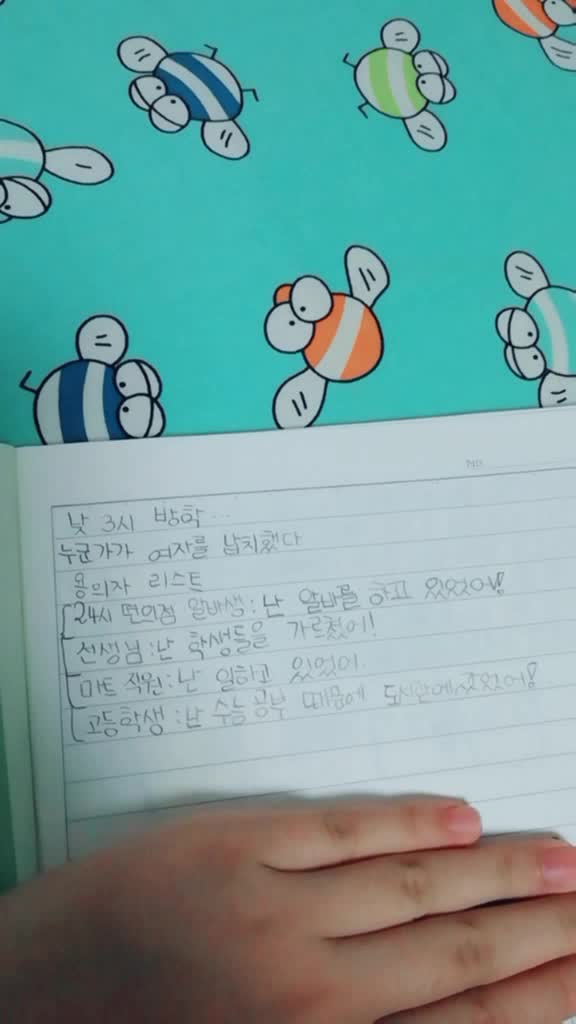 NO.
낮 3시 방학...
누군가가 여자를 납치했다
용의자 리스트
24시 편의점 알바생 : 난 알바를 하고 있었어!
선생님 : 난 학생들을 가르쳤어!
마트 직원 : 난 일하고 있었어.
고등학생 : 난 수능 공부 때문에 도서관에 갔었어!